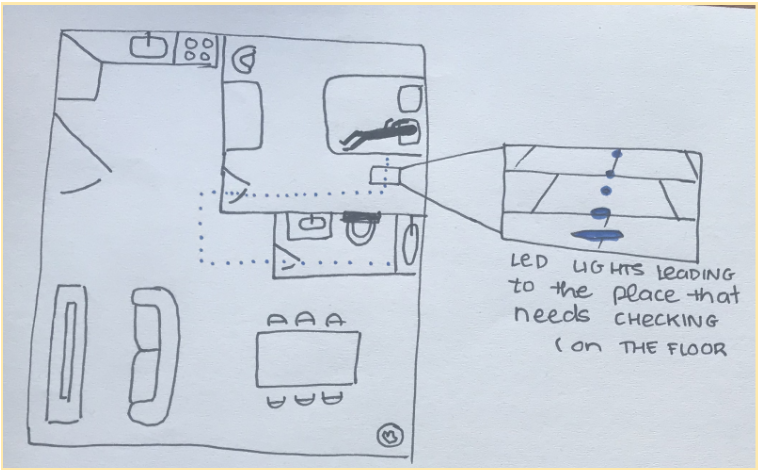 LED LIGHTS LEADING
to the place that
needs CHECKING
(on THE FLOOR